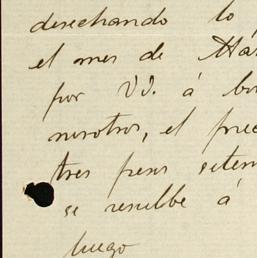 desechando lo
el mes de Ma
por VV. á bo
nosotros, el prec
tres pesos seten
se resuelbe á
luego